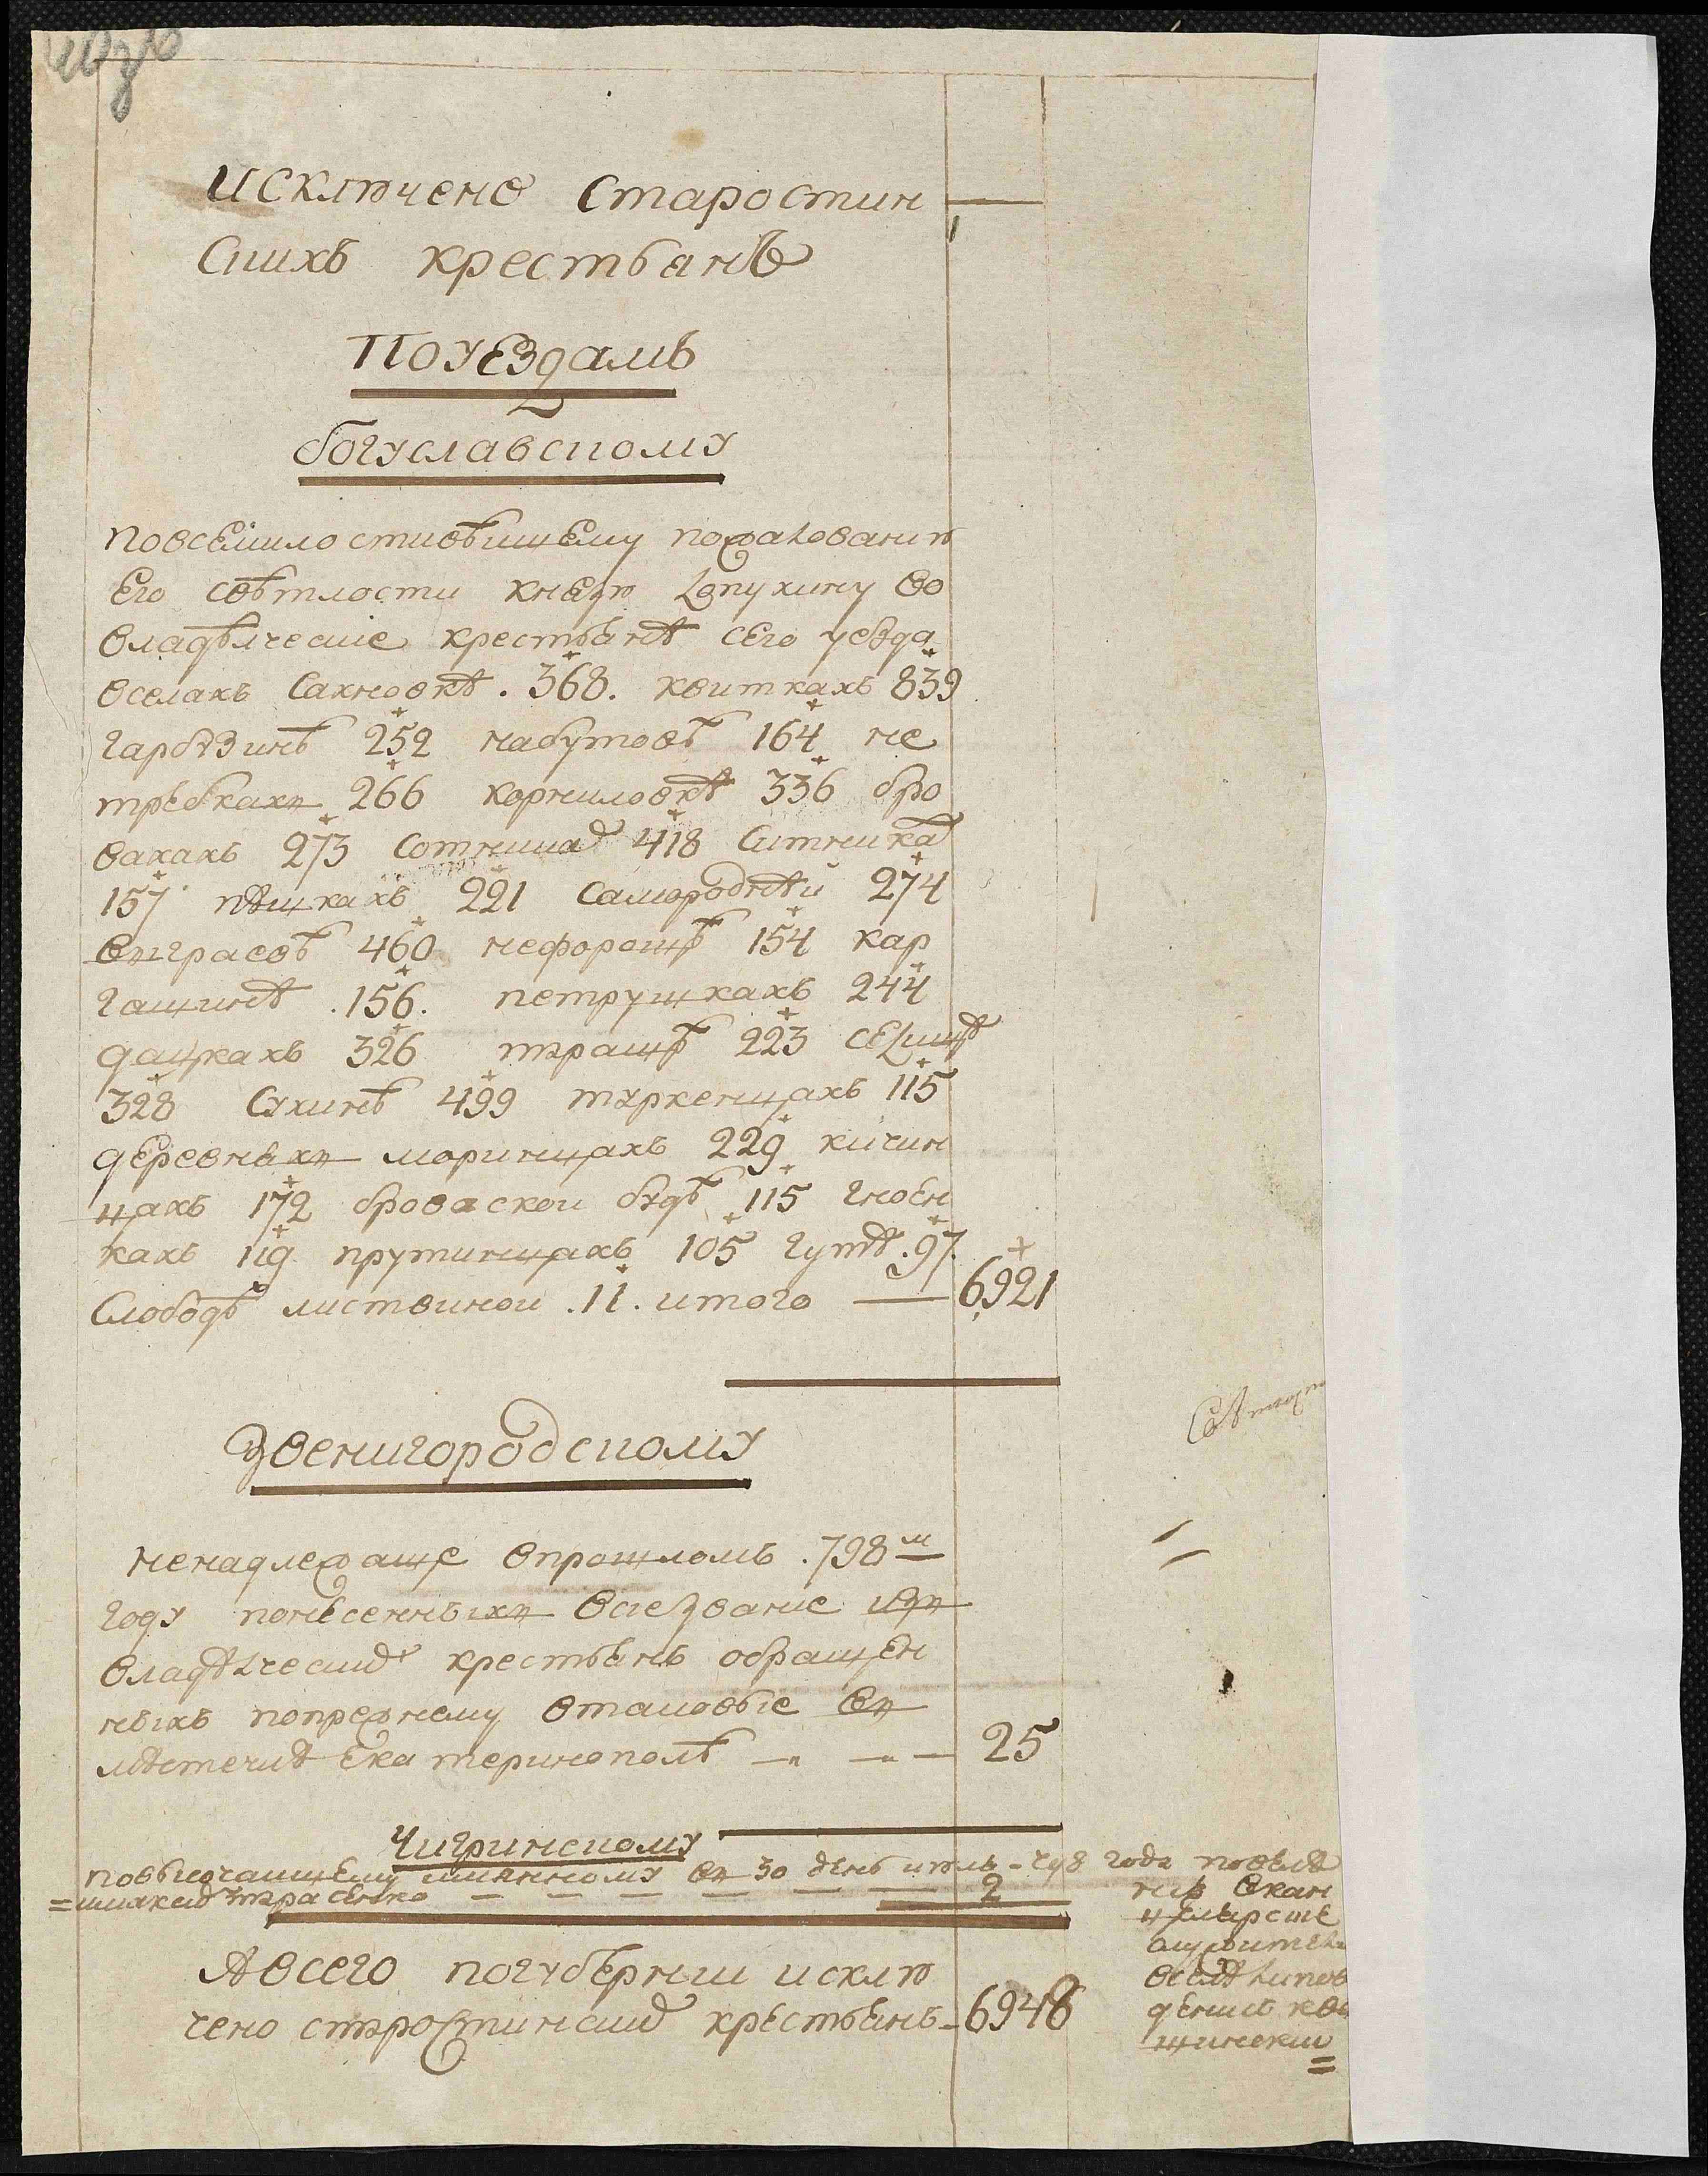 исключено старостин
скихъ крестьянъ
По уездамъ
богуславскому
по всемилостивѣйшему пожалованию
Его свѣтлости князю Лопухину во
владѣлческие крестьянѣ сего уезда
в селахъ Сахновкѣ . 368. квиткахъ 839
гарбузинѣ 252 набутовѣ 164 не
требкахъ 266 корниловкѣ 336 бро
вахахъ 273 Сотникахъ 418 Ситникахъ
157 пѣшкахъ 221 Самородней 274
выграевѣ 460 нефорощѣ 154 кар
гашинѣ . 156. петрушкахъ 244
дацкахъ 326 таращѣ 223 селищѣ
328 Сухинѣ 499 туркенцахъ 115
деревняхъ моринцахъ 229 кичин
цахъ 172 броваской будѣ 115 гноен
кахъ 119 прутинцахъ 105 гутѣ . 97.
Слободѣ листвиной . 11. итого — 6921
звенигородскому
ненадлежаще в прошломъ . 798 м
году понесенныхъ в исчезвание изъ
владѣлческихъ крестьянъ обращен
ныхъ по прежнему в таковые въ
мѣстечкѣ Екатеринополѣ 25
Чигринскому
по высочайшему имянному въ 30 день июль - 798 года повеле
нию в кан
2
целярские
служители
в селѣ
А всего по губернии исклю
чено старостинскихъ крестьянъ - 6948